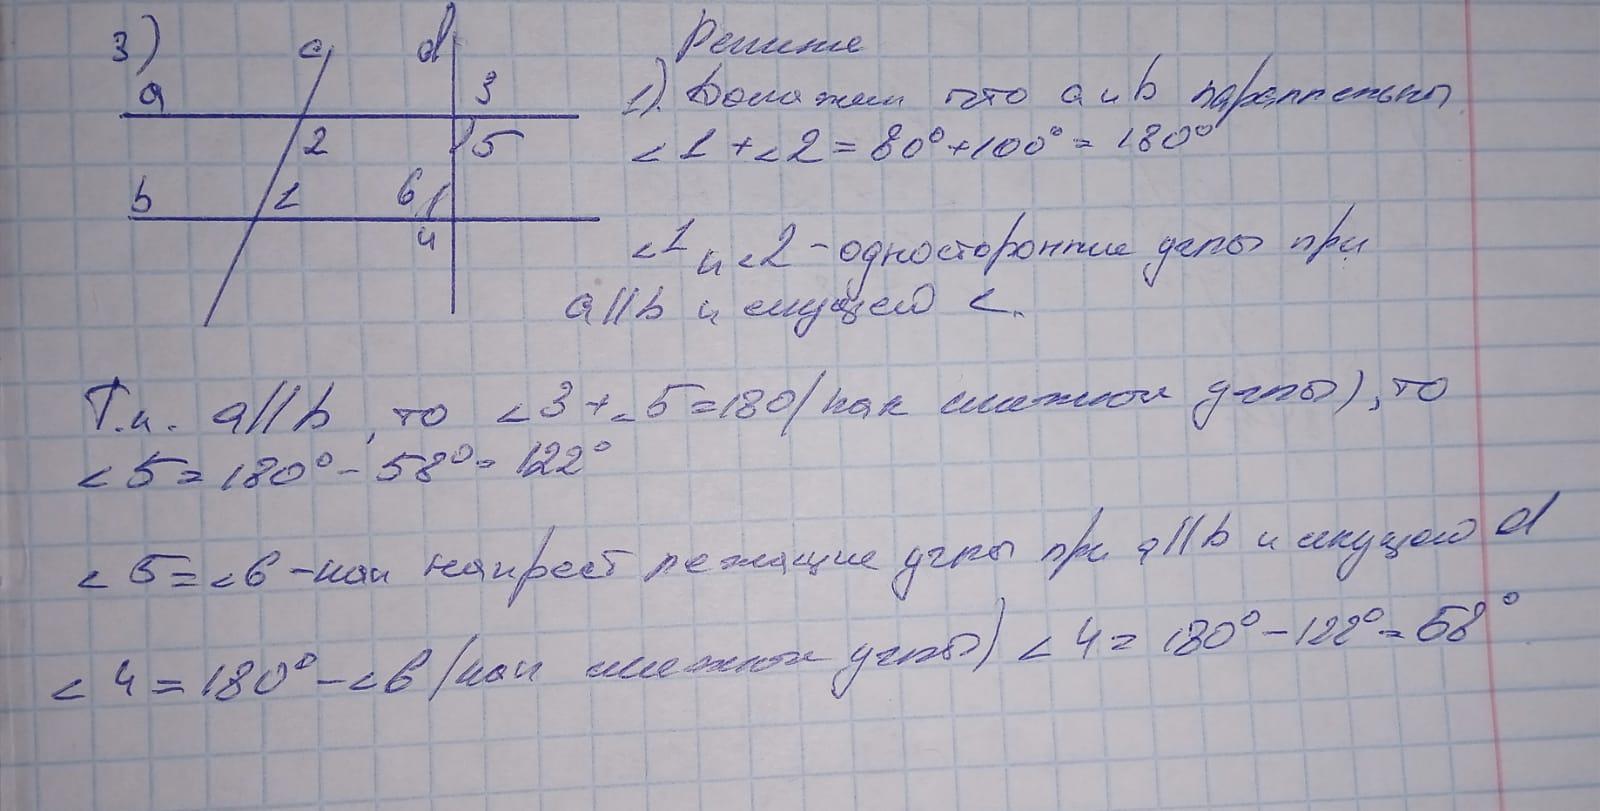 3)
c
d
a
3
2
5
b
1
6
4
Решение
1). Докажем что a и b параллельны
∠1+∠2=80°+100°=180°
∠1 и ∠2 - односторонние углы при
a||b и секущей c.
Т.к. a||b, то ∠3+∠5=180 (как смежной углы), то
∠5=180°-58°=122°
∠5=∠6 - как накрест лежащие углы при a||b и секущей d
∠4=180°-∠6 (как смежной углы) ∠4=180°-122°=58°